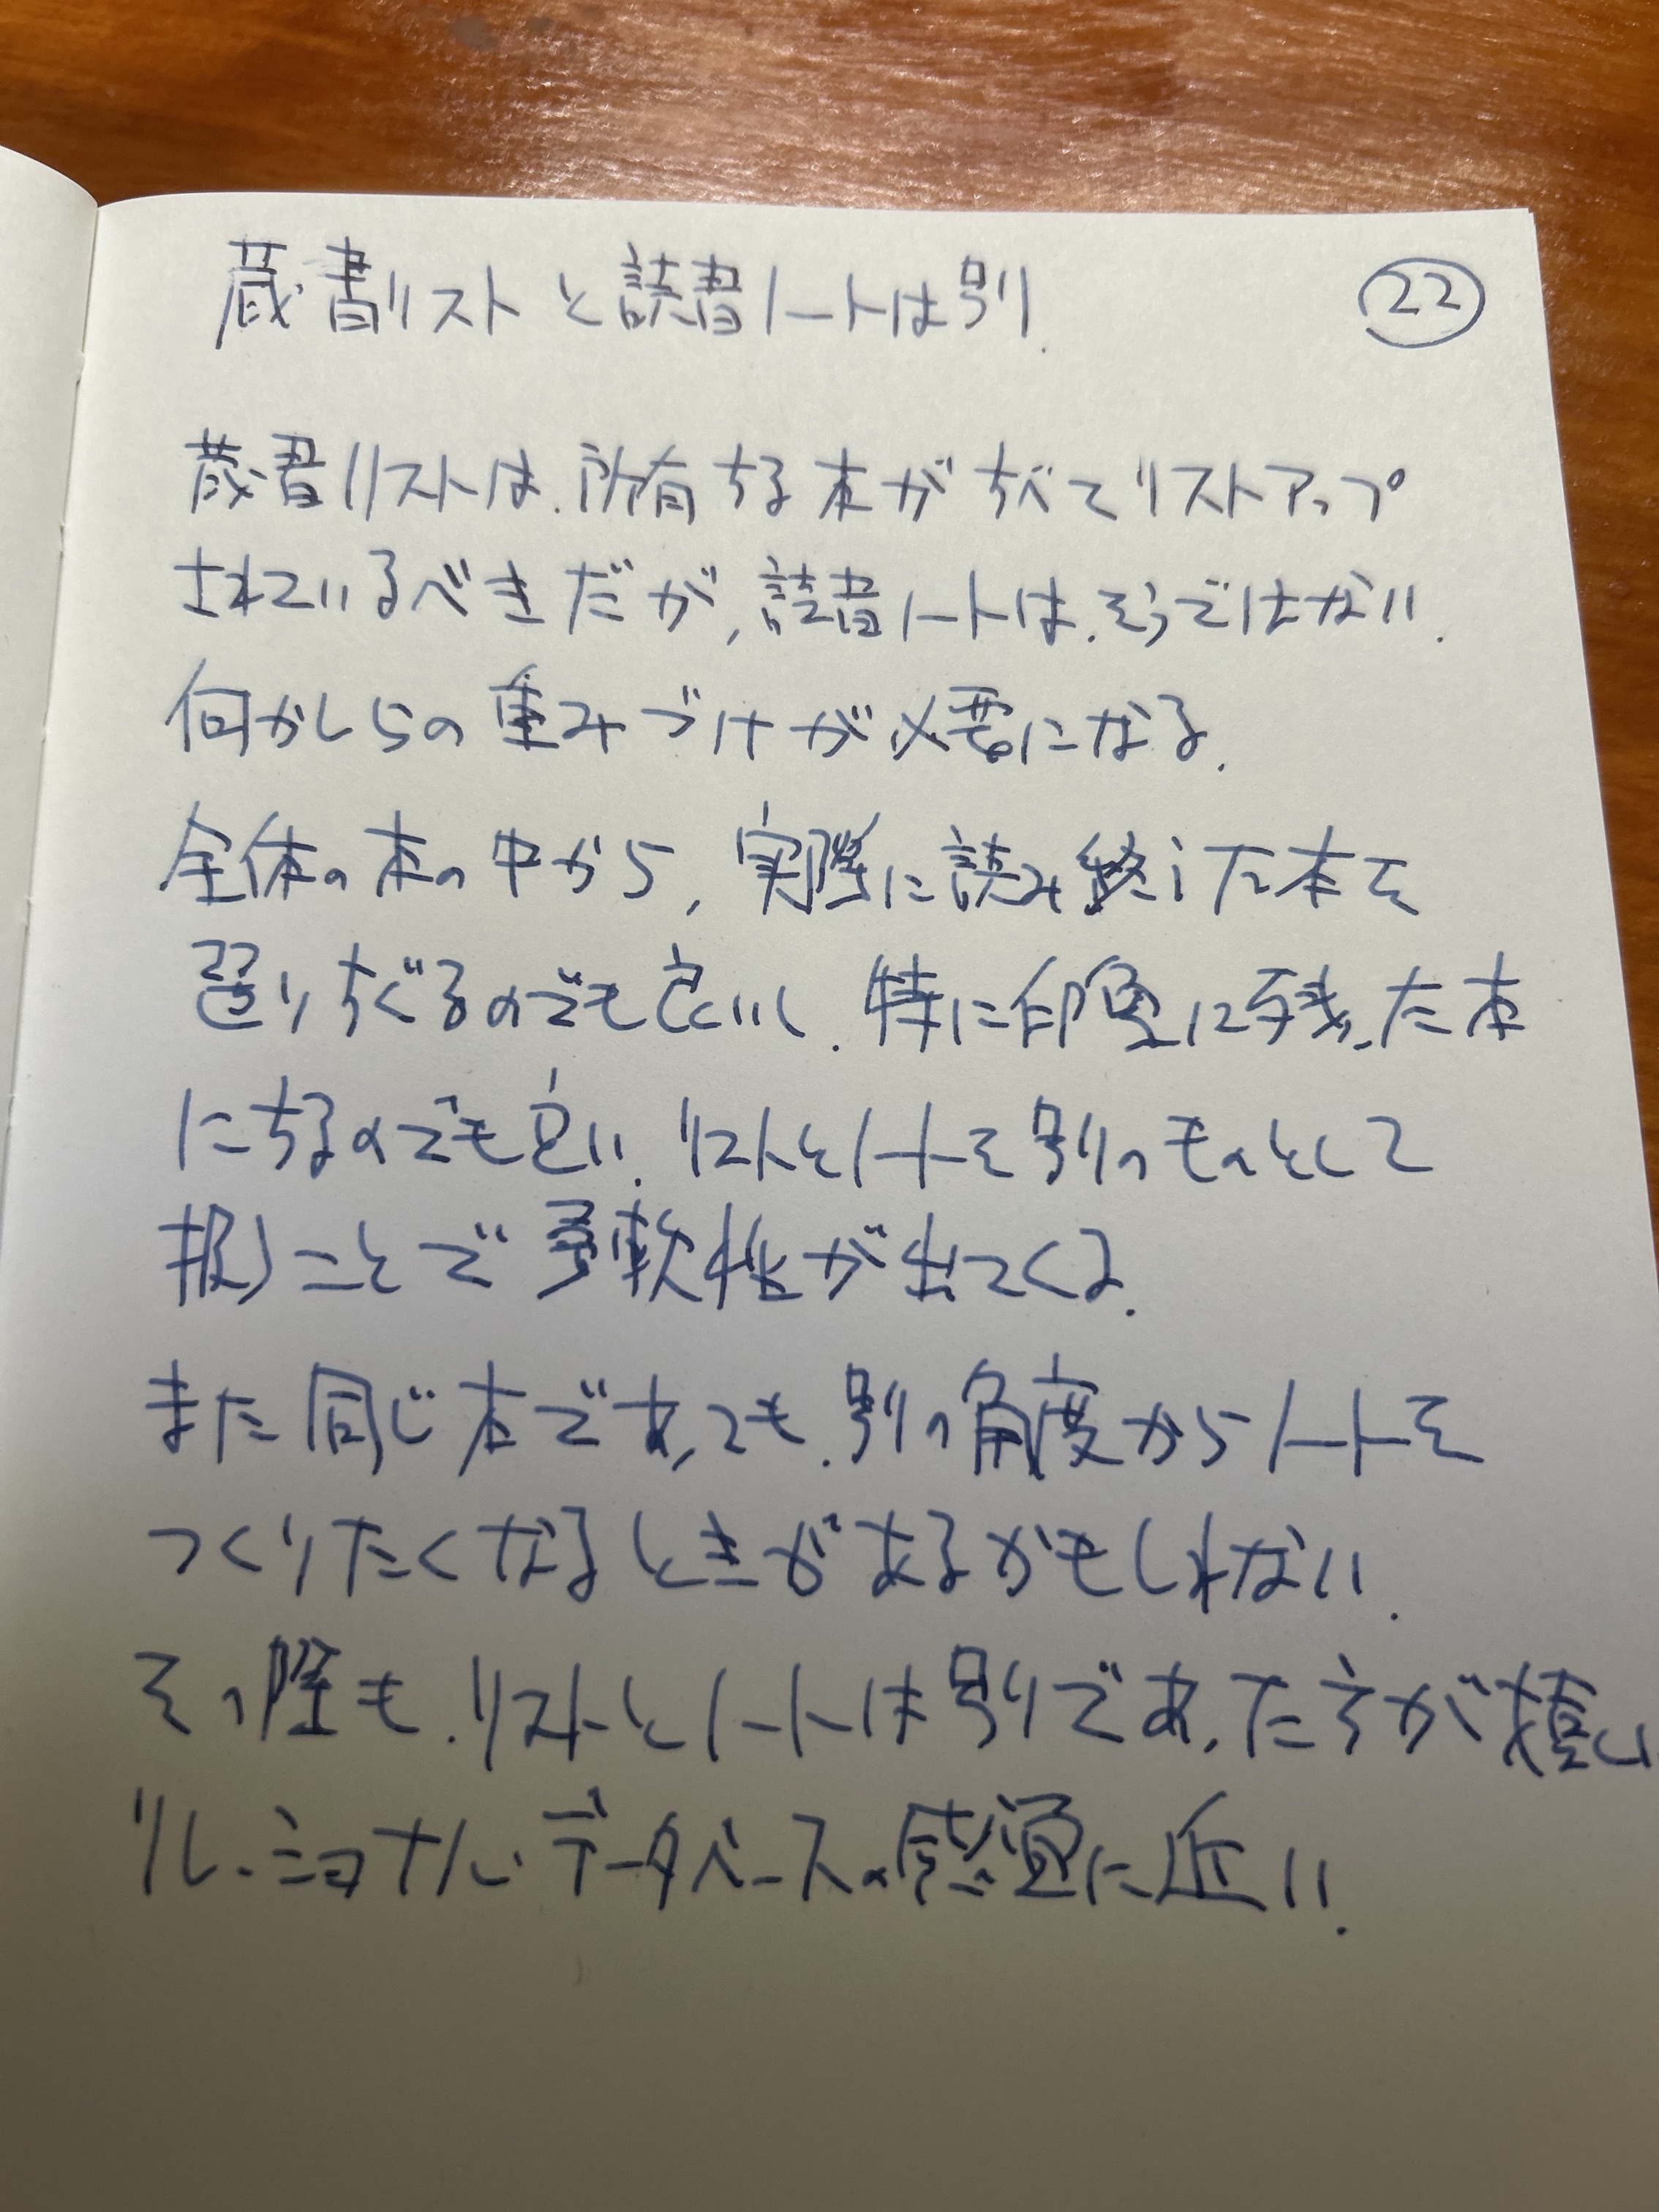 蔵書リストと読書ノートは別. 22
蔵書リストは、所有する本がすべてリストアップ
されているべきだが、読書ノートは、そうではない.
何かしらの重みづけが必要になる.
全体の本の中から、実際に読み終えた本を
選りすぐるのでも良いし、特に印象に残った本
にするのでも良い. リストとノートを別のものとして
扱うことで柔軟性が出てくる.
また同じ本であっても、別の角度からノートを
つくりたくなるときがあるかもしれない.
その際も、リストとノートは別であった方が嬉しい.
リレーショナルデータベースの感覚に近い.